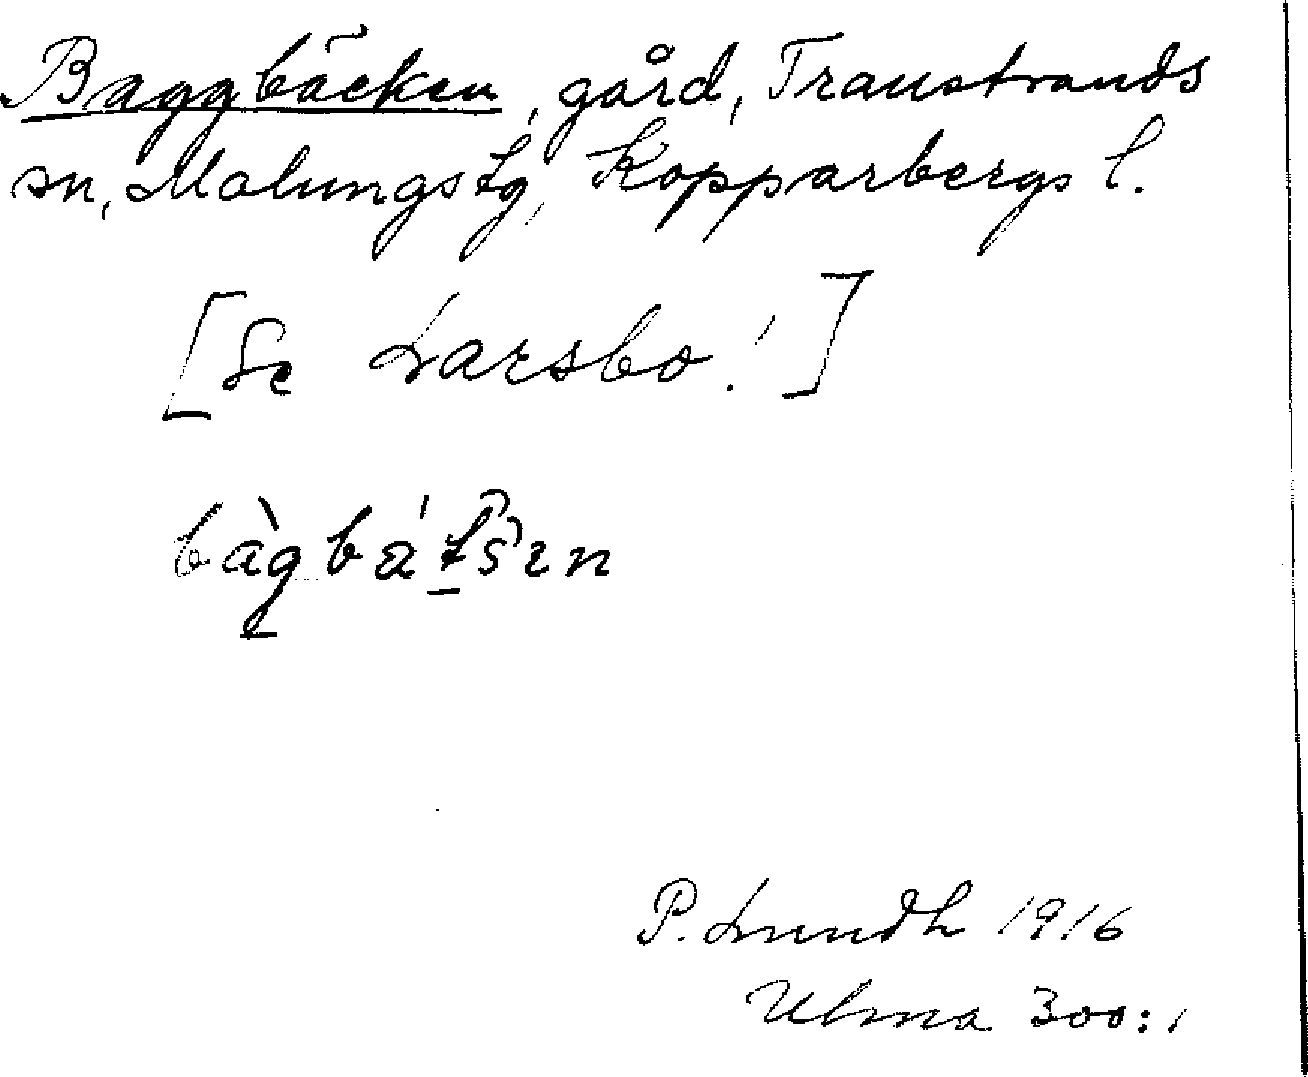 Baggbäcken, gård, Transtrands
sn, Malungs tg, Kopparbergs l.
[Se Larsbo!]
bàgbá't̠s̆ɪn
P. Lundh 1916
Ulma 300:1